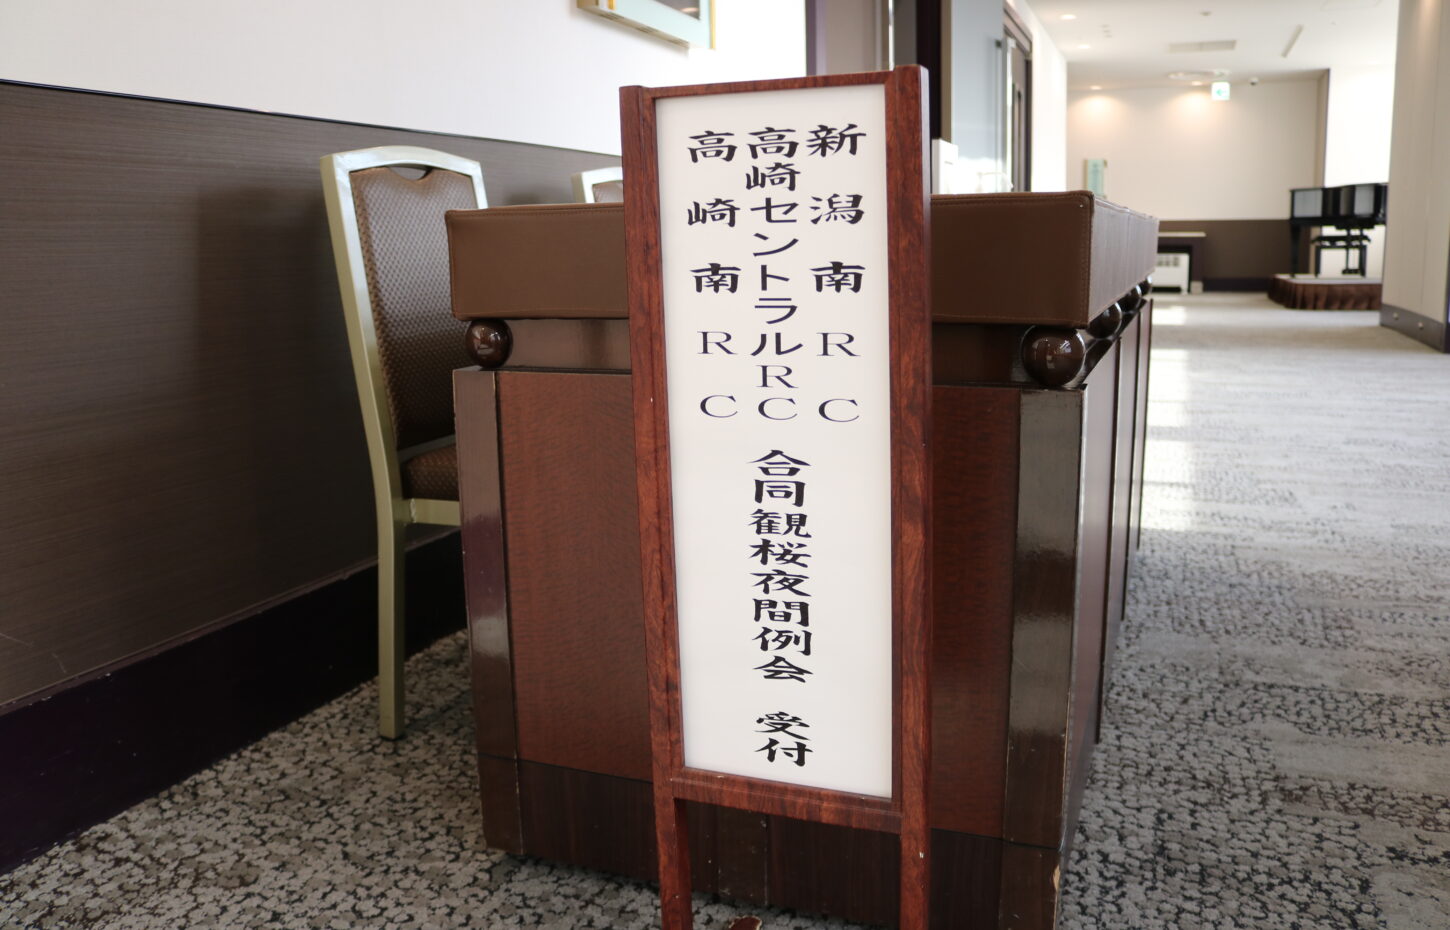 新潟南RC
高崎セントラルRC 合同観桜夜間例会 受付
高崎南RC